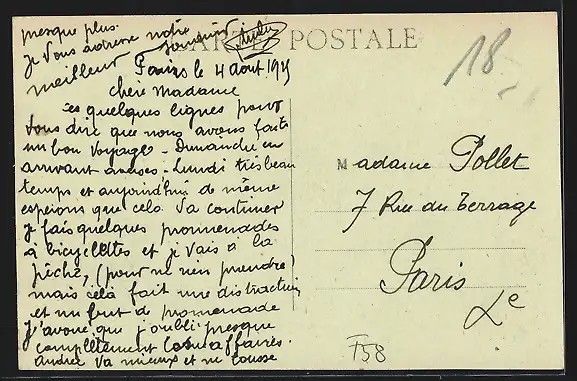 CARTE POSTALE
Paris le 4 août 19
Chère Madame
Ces quelques lignes pour
vous dire que nous avons fait
un bon voyage - Dimanche en
arrivant averses - Lundi très beau
temps et aujourd'hui de même
espérons que cela va continuer
je fais quelques promenades
à bicyclettes et je vais à la
pêche, (pour ne rien prendre)
mais cela fait une distraction
et un but de promenade
j'avoue que j'oubli presque
complètement affaires.
André va mieux et ne tousse
presque plus.
Je vous adresse notre
meilleur souvenir
18
Madame Pollet
7 Rue du Terrage
Paris
Xe
F58